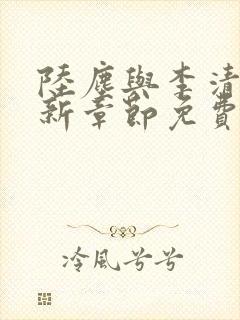 陸塵與李清
新章節免費
冷風兮兮